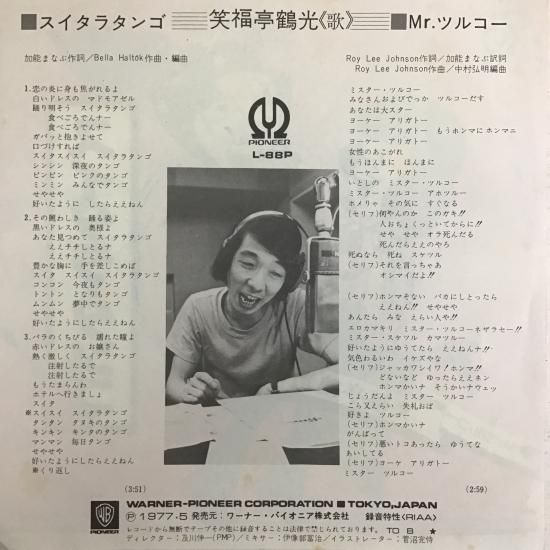 ■スイタラタンゴ 笑福亭鶴光《歌》 ■Mr.ツルコー
加能まなぶ作詞/Bella Haltók作曲・編曲
1.恋の炎に身も焦がれるよ
白いドレスの マドモアゼル
踊り明そう スイタラタンゴ
食べごろでんナー
食べごろでんナー
ガバッと抱きよせて
口づけすれば
スイタスイスイ スイタラタンゴ
シンシン 深夜のタンゴ
ピンピン ピンクのタンゴ
ミンミン みんなでタンゴ
せやせや
好いたように したらええねん
2.その麗わしき 踊る姿よ
黒いドレスの 奥様よ
あなた見つめて スイタラタンゴ
ええチチしとるナ
ええチチしとるナ
豊かな胸に 手を差しこめば
スイタ スイスイ スイタラタンゴ
コンコン 今夜もタンゴ
トントン となりもタンゴ
ムンムン 夢中でタンゴ
せやせや
好いたように したらええねん
3.バラのくちびる 濡れた瞳よ
赤いドレスの お嬢さん
熱く激しく スイタラタンゴ
注射したるで
注射したるで
もうたまらんわ
ホテルへ行きましょ
スイタ
※スイスイ スイタラタンゴ
タンタン タヌキのタンゴ
キンキン キンタのタンゴ
マンマン 毎日タンゴ
せやせや
好いたように したらええねん
※くり返し
(3:51)
PIONEER
L-88P
Roy Lee Johnson作詞/加能まなぶ訳詞
Roy Lee Johnson作曲/中村弘明編曲
ミスター・ツルコー
みなさんおよびでっか ツルコーだす
あなたは大スター
ヨーケー アリガトー
ヨーケー アリガトー もうホンマにホンマニ
ヨーケー アリガトー
女性のあこがれ
もうほんまに ほんまに
ヨーケー アリガトー
いとしの ミスター・ツルコー
ミスター・ツルコー アホツルー
ホメリャ その気に すぐなる
(セリフ)何やんのか このガキ!!
人おちょくっといてからに!!
せや せや オラ死んだる
死んだらええのやろ
死ぬなら 死ね スケツル
(セリフ)それを言っちゃあ
オシマイだよ!!
(セリフ)ホンマそない バカにしとったら
ええねん!! せやせや
あんたら みな えらい人や!!
エロカマキリ ミスター・ツルコーネザラセー!!
ミスター・スケツル カマツルー
好いたようにゆうてたら ええねんナ!!
気色わるいわ イケズやな
(セリフ)ジャッカワシイワ!ホンマ!!
どないなど ゆったらええネン
ホンマかいナ そうかいナウェッ
じょうだんよ ミスター ツルコー
こら又えらい 失礼おば
好きよ ツルコー
(セリフ)ホンマかいナ
がんばって
(セリフ)悪いトコあったら ゆうてな
あいしてる
(セリフ)ヨーケ アリガトー
ミスター ツルコー
(2:59)
WB
PIONEER
WARNER-PIONEER CORPORATION ■ TOKYO, JAPAN
Ⓟ1977.5 発売元:ワーナー・パイオニア株式会社 録音特性〈RIAA〉
レコードから無断でテープその他に録音することは法律で禁じられております。 ★ TO B ★
ディレクター:及川伸一(PMP)/ミキサー:伊像郎富治/イラストレーター:菅沼完侍